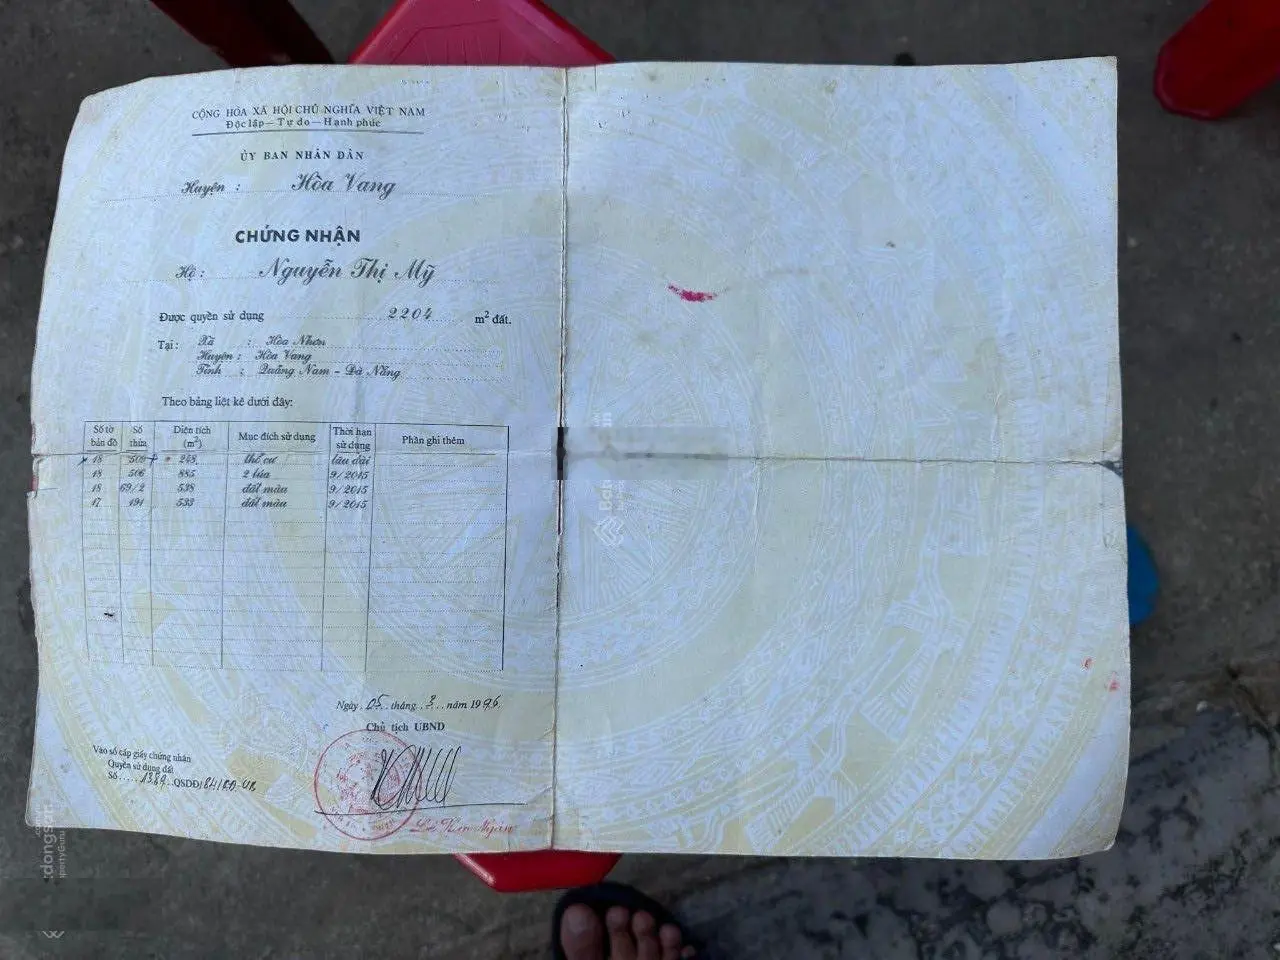 CỘNG HÒA XÃ HỘI CHỦ NGHĨA VIỆT NAM
Độc lập - Tự do - Hạnh phúc
ỦY BAN NHÂN DÂN
Huyện : Hòa Vang
CHỨNG NHẬN
Hộ: Nguyễn Thị Mỹ
Được quyền sử dụng 2204 m² đất.
Tại : Xã : Hòa Nhơn
Huyện : Hòa Vang
Tỉnh : Quảng Nam - Đà Nẵng
Theo bảng liệt kê dưới đây:
Số tờ bản đồ Số thửa Diện tích (m²) Mục đích sử dụng Thời hạn sử dụng Phần ghi thêm
18 248 thổ cư lâu dài
18 506 885 2 lúa 9/2015
18 69/2 538 đất màu 9/2015
17 191 533 đất màu 9/2015
Ngày 05 tháng 3 năm 1996
Chủ tịch UBND
Vào sổ cấp giấy chứng nhận
Quyền sử dụng đất
Số QSDĐ/